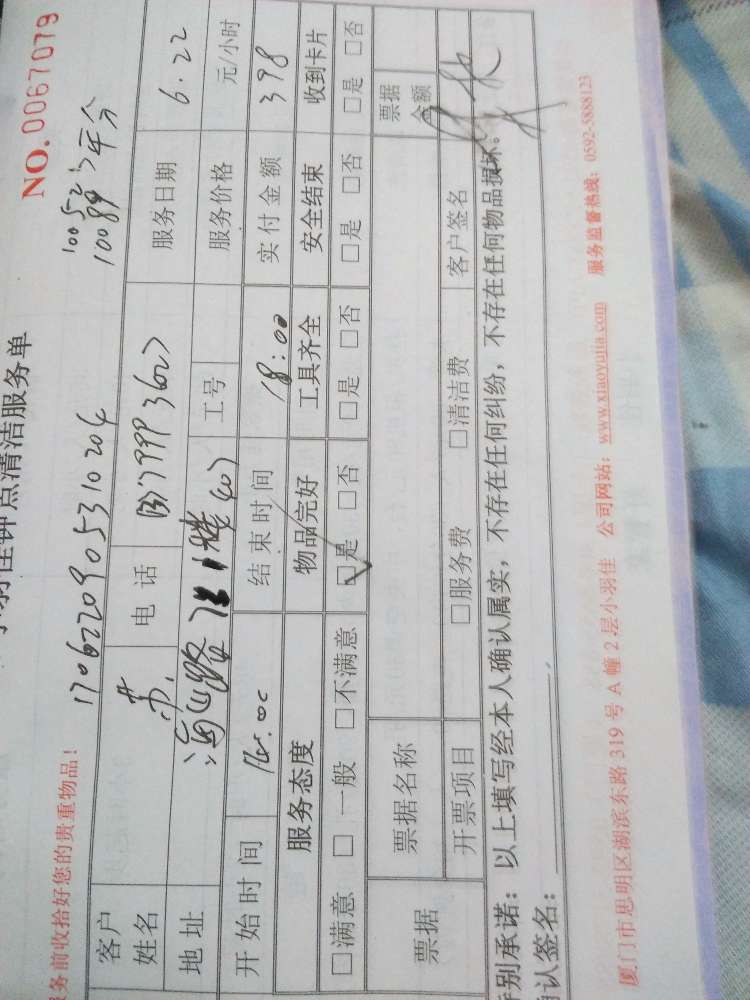 羽佳钟点清洁服务单
NO.0067079
务前收拾好您的贵重物品!
1706220905310204
客户姓名 苏 电话 服务日期 6.22
地址 海 路 楼 工号 服务价格 元/小时
开始时间 结束时间 18:00 实付金额 398
服务态度 物品完好 工具齐全 安全结束 收到卡片
□满意 □一般 □不满意 □是 □否 □是 □否 □是 □否 □是 □否
票据 票据名称 票据金额
开票项目 □服务费 □清洁费 客户签名
别承诺:以上填写经本人确认属实,不存在任何纠纷,不存在任何物品损坏。
认签名:
厦门市思明区湖滨东路 319 号 A 幢 2 层小羽佳 公司网站:www.xiaoyujia.com 服务监督热线:0592-5888123